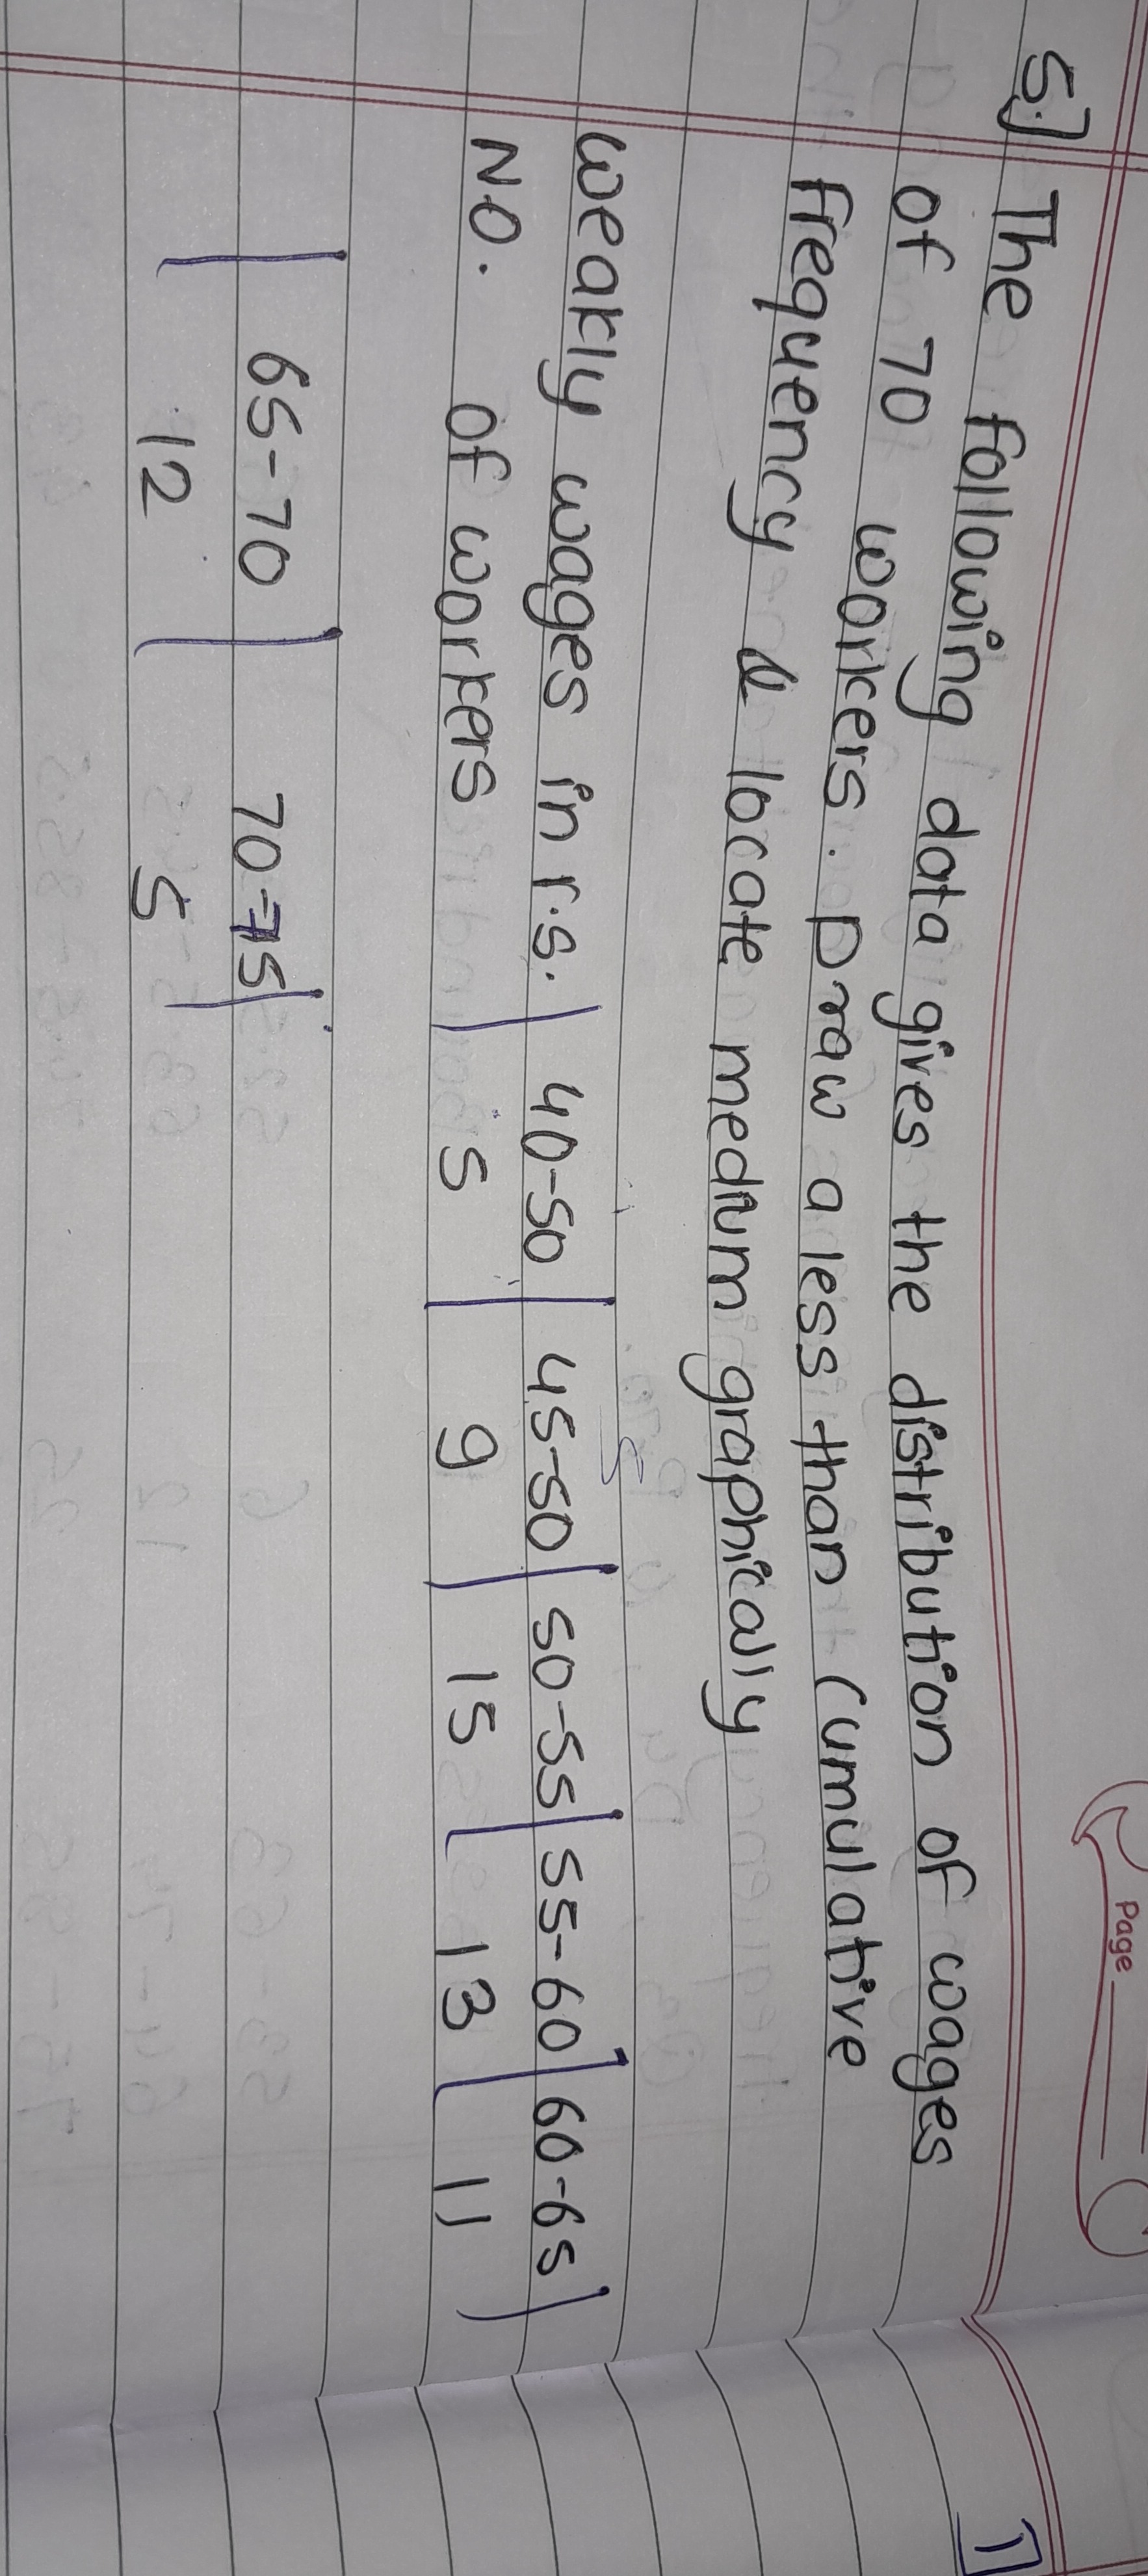 Page
1
5.] The following data gives the distribution of wages
of 70 workers. Draw a less than Cumulative
frequency & locate medium graphically
weakly wages in r.s. | 40-50 | 45-50 | 50-55 | 55-60 | 60-65 |
N.O. of workers | 5 | 9 | 15 | 13 | 11 |
| 65-70 | 70-75 |
| 12 | 5 |